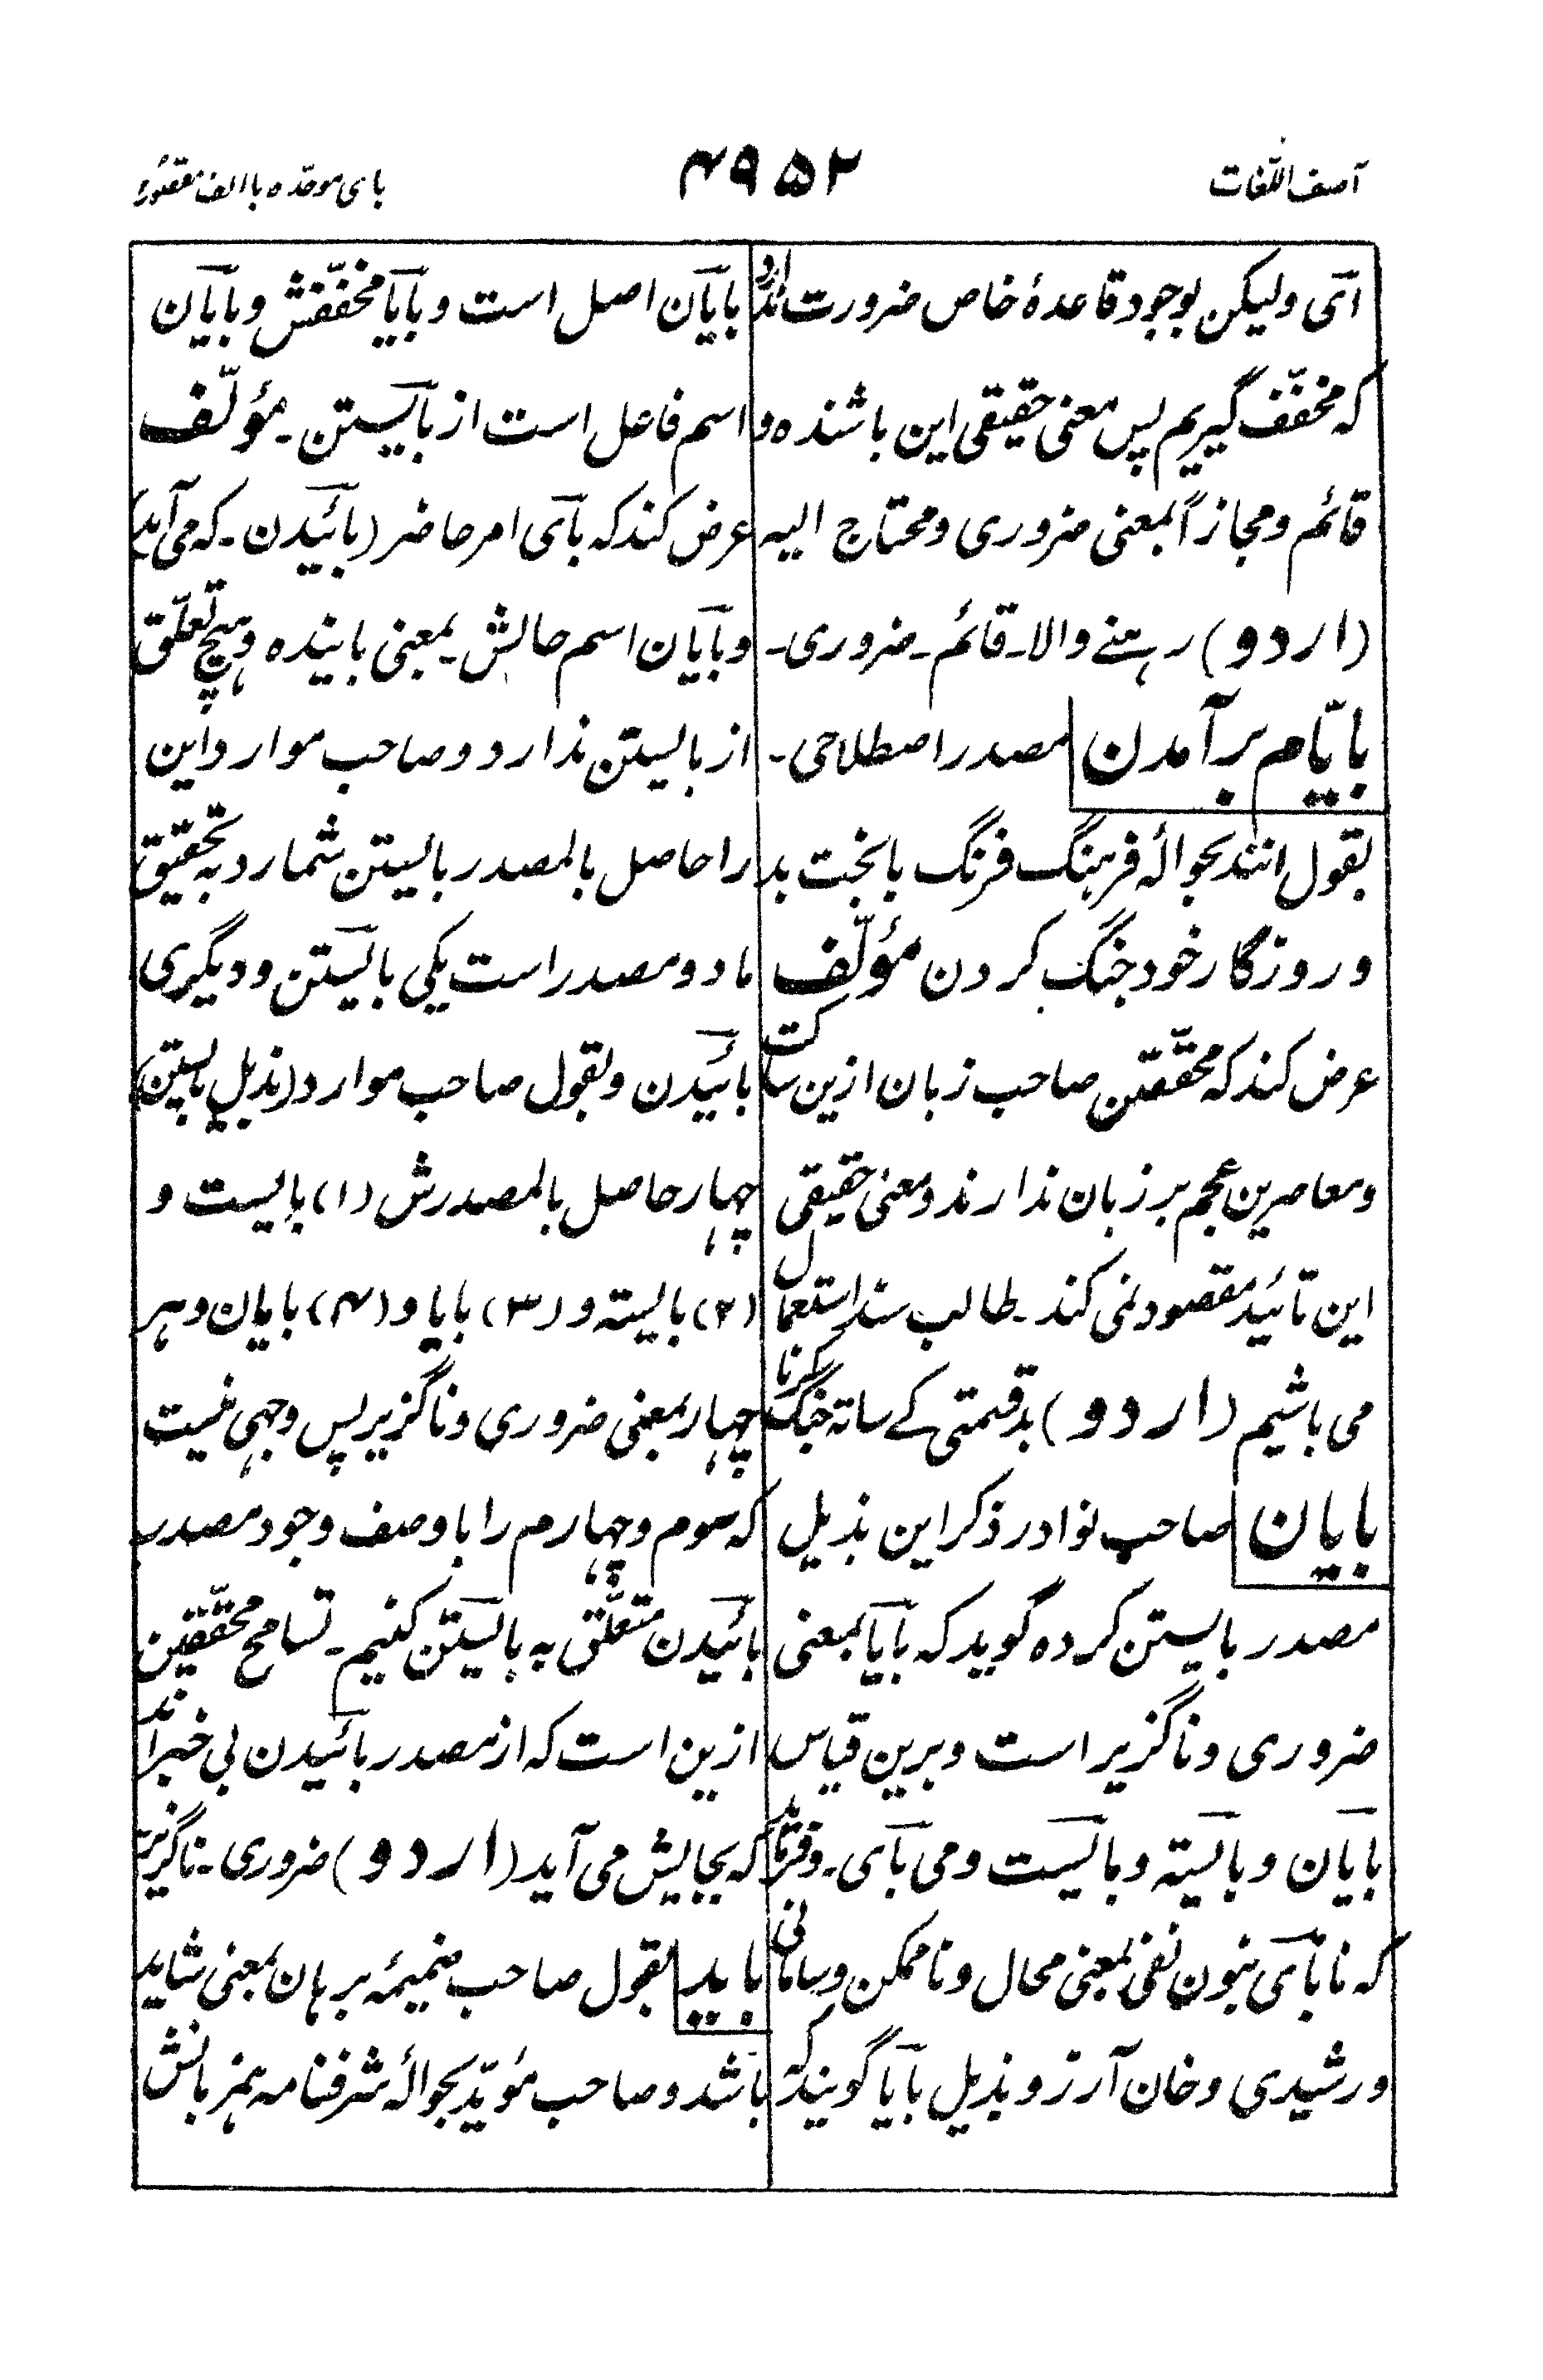 آصف اللّغات
۴۹۵۲
بای موحّده با الف مقصوره
آی ولیکن بوجود قاعدۂ خاص ضرورت ندارد
که مخفّف گیریم پس معنی حقیقی این باشنده و
قائم و مجازاً بمعنی ضروری و محتاج الیه
(اردو) رہنے والا ۔ قائم ۔ ضروری ۔
بایّام برآمدن مصدر اصطلاحی ۔
بقول انند بحوالۂ فرہنگ فرنگ با بخت بد
و روزگار خود جنگ کردن مؤلّف
عرض کند که محقّقین صاحب زبان ازین ساکت
و معاصرین عجم بر زبان ندارند و معنی حقیقی
این تائید مقصود نمی کند ۔ طالب سند استعمال
می باشیم (اردو) بدقسمتی کے ساتہ جنگ کرنا
بایان صاحب نوادر ذکر این بذیل
مصدر بایستن کرده گوید که بایا بمعنی
ضروری و ناگزیر است و برین قیاس
بایان و بایسته و بایست و می بای ۔ و فرماید
که نا بای بنون نفی بمعنی محال و ناممکن و سامانی
و رشیدی و خان آرزو بذیل بایا گویند که
بایان اصل است و بایا مخفّفش و بایان
اسم فاعل است از بایستن ۔ مؤلّف
عرض کند که بای امر حاضر (بائیدن ۔ که می آید)
و بایان اسم حالش ۔ بمعنی باینده و هیچ تعلّق
از بایستن ندارد و صاحب موارد این
را حاصل بالمصدر بایستن شمارد به تحقیق
ما دو مصدر است یکی بایستن و دیگری
بائیدن و بقول صاحب موارد (بذیل بایستن)
چهار حاصل بالمصدرش (۱) بایست و
(۲) بایسته و (۳) بایا و (۴) بایان و هر
چهار بمعنی ضروری و ناگزیر پس وجهی نیست
که سوم و چهارم را با وصف وجود مصدر
بائیدن متعلّق به بایستن کنیم ۔ تسامح محقّقین
ازین است که از مصدر بائیدن بی خبر اند
که بجایش می آید (اردو) ضروری ۔ ناگزیر
باید بقول صاحب ضمیمۂ برہان بمعنی شاید
باشد و صاحب مؤیّد بحوالۂ شرفنامه همزبانش